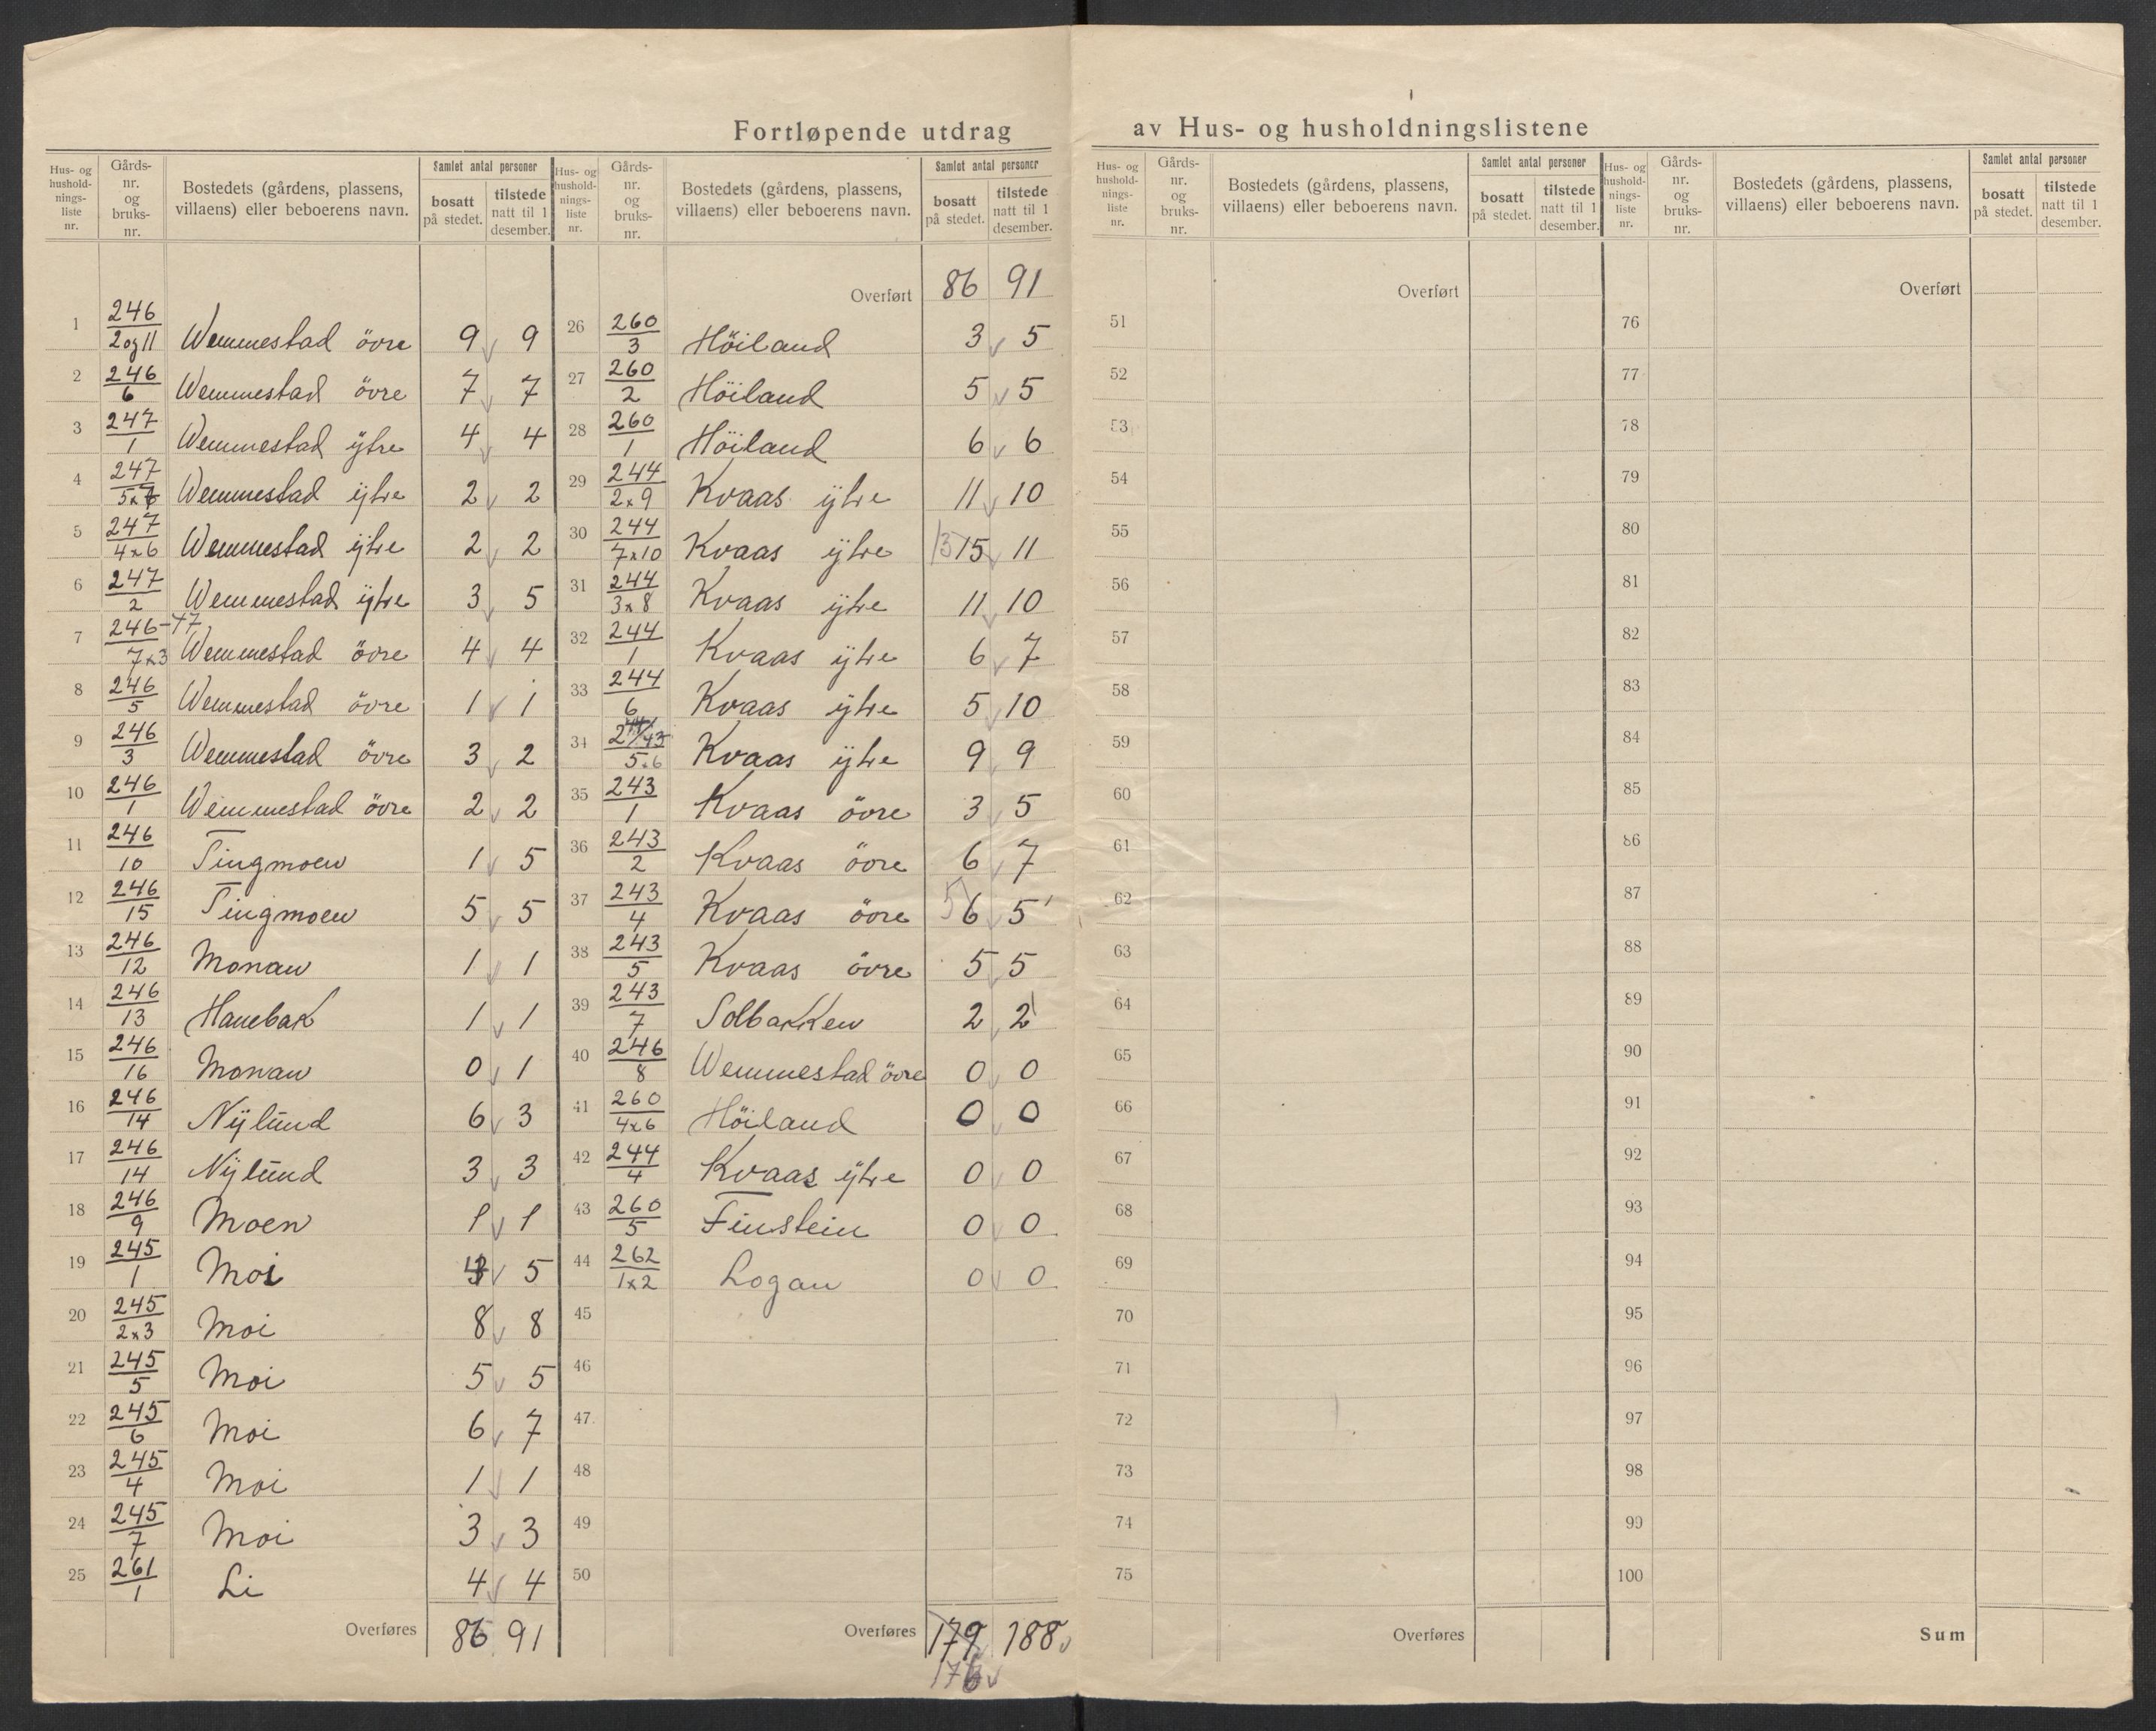 Fortløpende utdrag av Hus- og husholdningslistene
Hus- og hushold-nings-liste nr. | Gårds-nr. og bruks-nr. | Bostedets (gårdens, plassens, villaens) eller beboerens navn. | Samlet antal personer bosatt på stedet. | tilstede natt til 1 desember.
1 246/2 og 11 Wemmestad övre 9 9
2 246/6 Wemmestad övre 7 7
3 247/1 Wemmestad ÿtre 4 4
4 247/5x7 Wemmestad ÿtre 2 2
5 247/4x6 Wemmestad ÿtre 2 2
6 247/2 Wemmestad ÿtre 3 5
7 246-47/7x3 Wemmestad övre 4 4
8 246/5 Wemmestad övre 1 1
9 246/3 Wemmestad övre 3 2
10 246/1 Wemmestad övre 2 2
11 246/10 Tingmoen 1 5
12 246/15 Tingmoen 5 5
13 246/12 Monan 1 1
14 246/13 Hanebak 1 1
15 246/16 Monan 0 1
16 246/14 Nÿlund 6 3
17 246/14 Nÿlund 3 3
18 246/9 Moen 1 1
19 245/1 Moi 4 5
20 245/2x3 Moi 8 8
21 245/5 Moi 5 5
22 245/6 Moi 6 7
23 245/4 Moi 1 1
24 245/7 Moi 3 3
25 261/1 Li 4 4
Overføres 86 91
Hus- og hushold-nings-liste nr. | Gårds-nr. og bruks-nr. | Bostedets (gårdens, plassens, villaens) eller beboerens navn. | Samlet antal personer bosatt på stedet. | tilstede natt til 1 desember.
Overført 86 91
26 260/3 Höiland 3 5
27 260/2 Höiland 5 5
28 260/1 Höiland 6 6
29 244/2x9 Kvaas ÿtre 11 10
30 244/7x10 Kvaas ÿtre 13 15 11
31 244/3x8 Kvaas ÿtre 11 10
32 244/1 Kvaas ÿtre 6 7
33 244/6 Kvaas ÿtre 5 10
34 5x6 Kvaas ÿtre 9 9
35 243/1 Kvaas övre 3 5
36 243/2 Kvaas övre 6 7
37 243/4 Kvaas övre 5 6 5
38 243/5 Kvaas övre 5 5
39 243/7 Solbakken 2 2
40 246/8 Wemmestad övre 0 0
41 260/4x6 Höiland 0 0
42 244/4 Kvaas ÿtre 0 0
43 260/5 Finstein 0 0
44 262/1x2 Logan 0 0
45
46
47
48
49
50
Overføres 179 188
176
Hus- og hushold-nings-liste nr. | Gårds-nr. og bruks-nr. | Bostedets (gårdens, plassens, villaens) eller beboerens navn. | Samlet antal personer bosatt på stedet. | tilstede natt til 1 desember.
Overført
51
52
53
54
55
56
57
58
59
60
61
62
63
64
65
66
67
68
69
70
71
72
73
74
75
Overføres
Hus- og hushold-nings-liste nr. | Gårds-nr. og bruks-nr. | Bostedets (gårdens, plassens, villaens) eller beboerens navn. | Samlet antal personer bosatt på stedet. | tilstede natt til 1 desember.
Overført
76
77
78
79
80
81
82
83
84
85
86
87
88
89
90
91
92
93
94
95
96
97
98
99
100
Sum